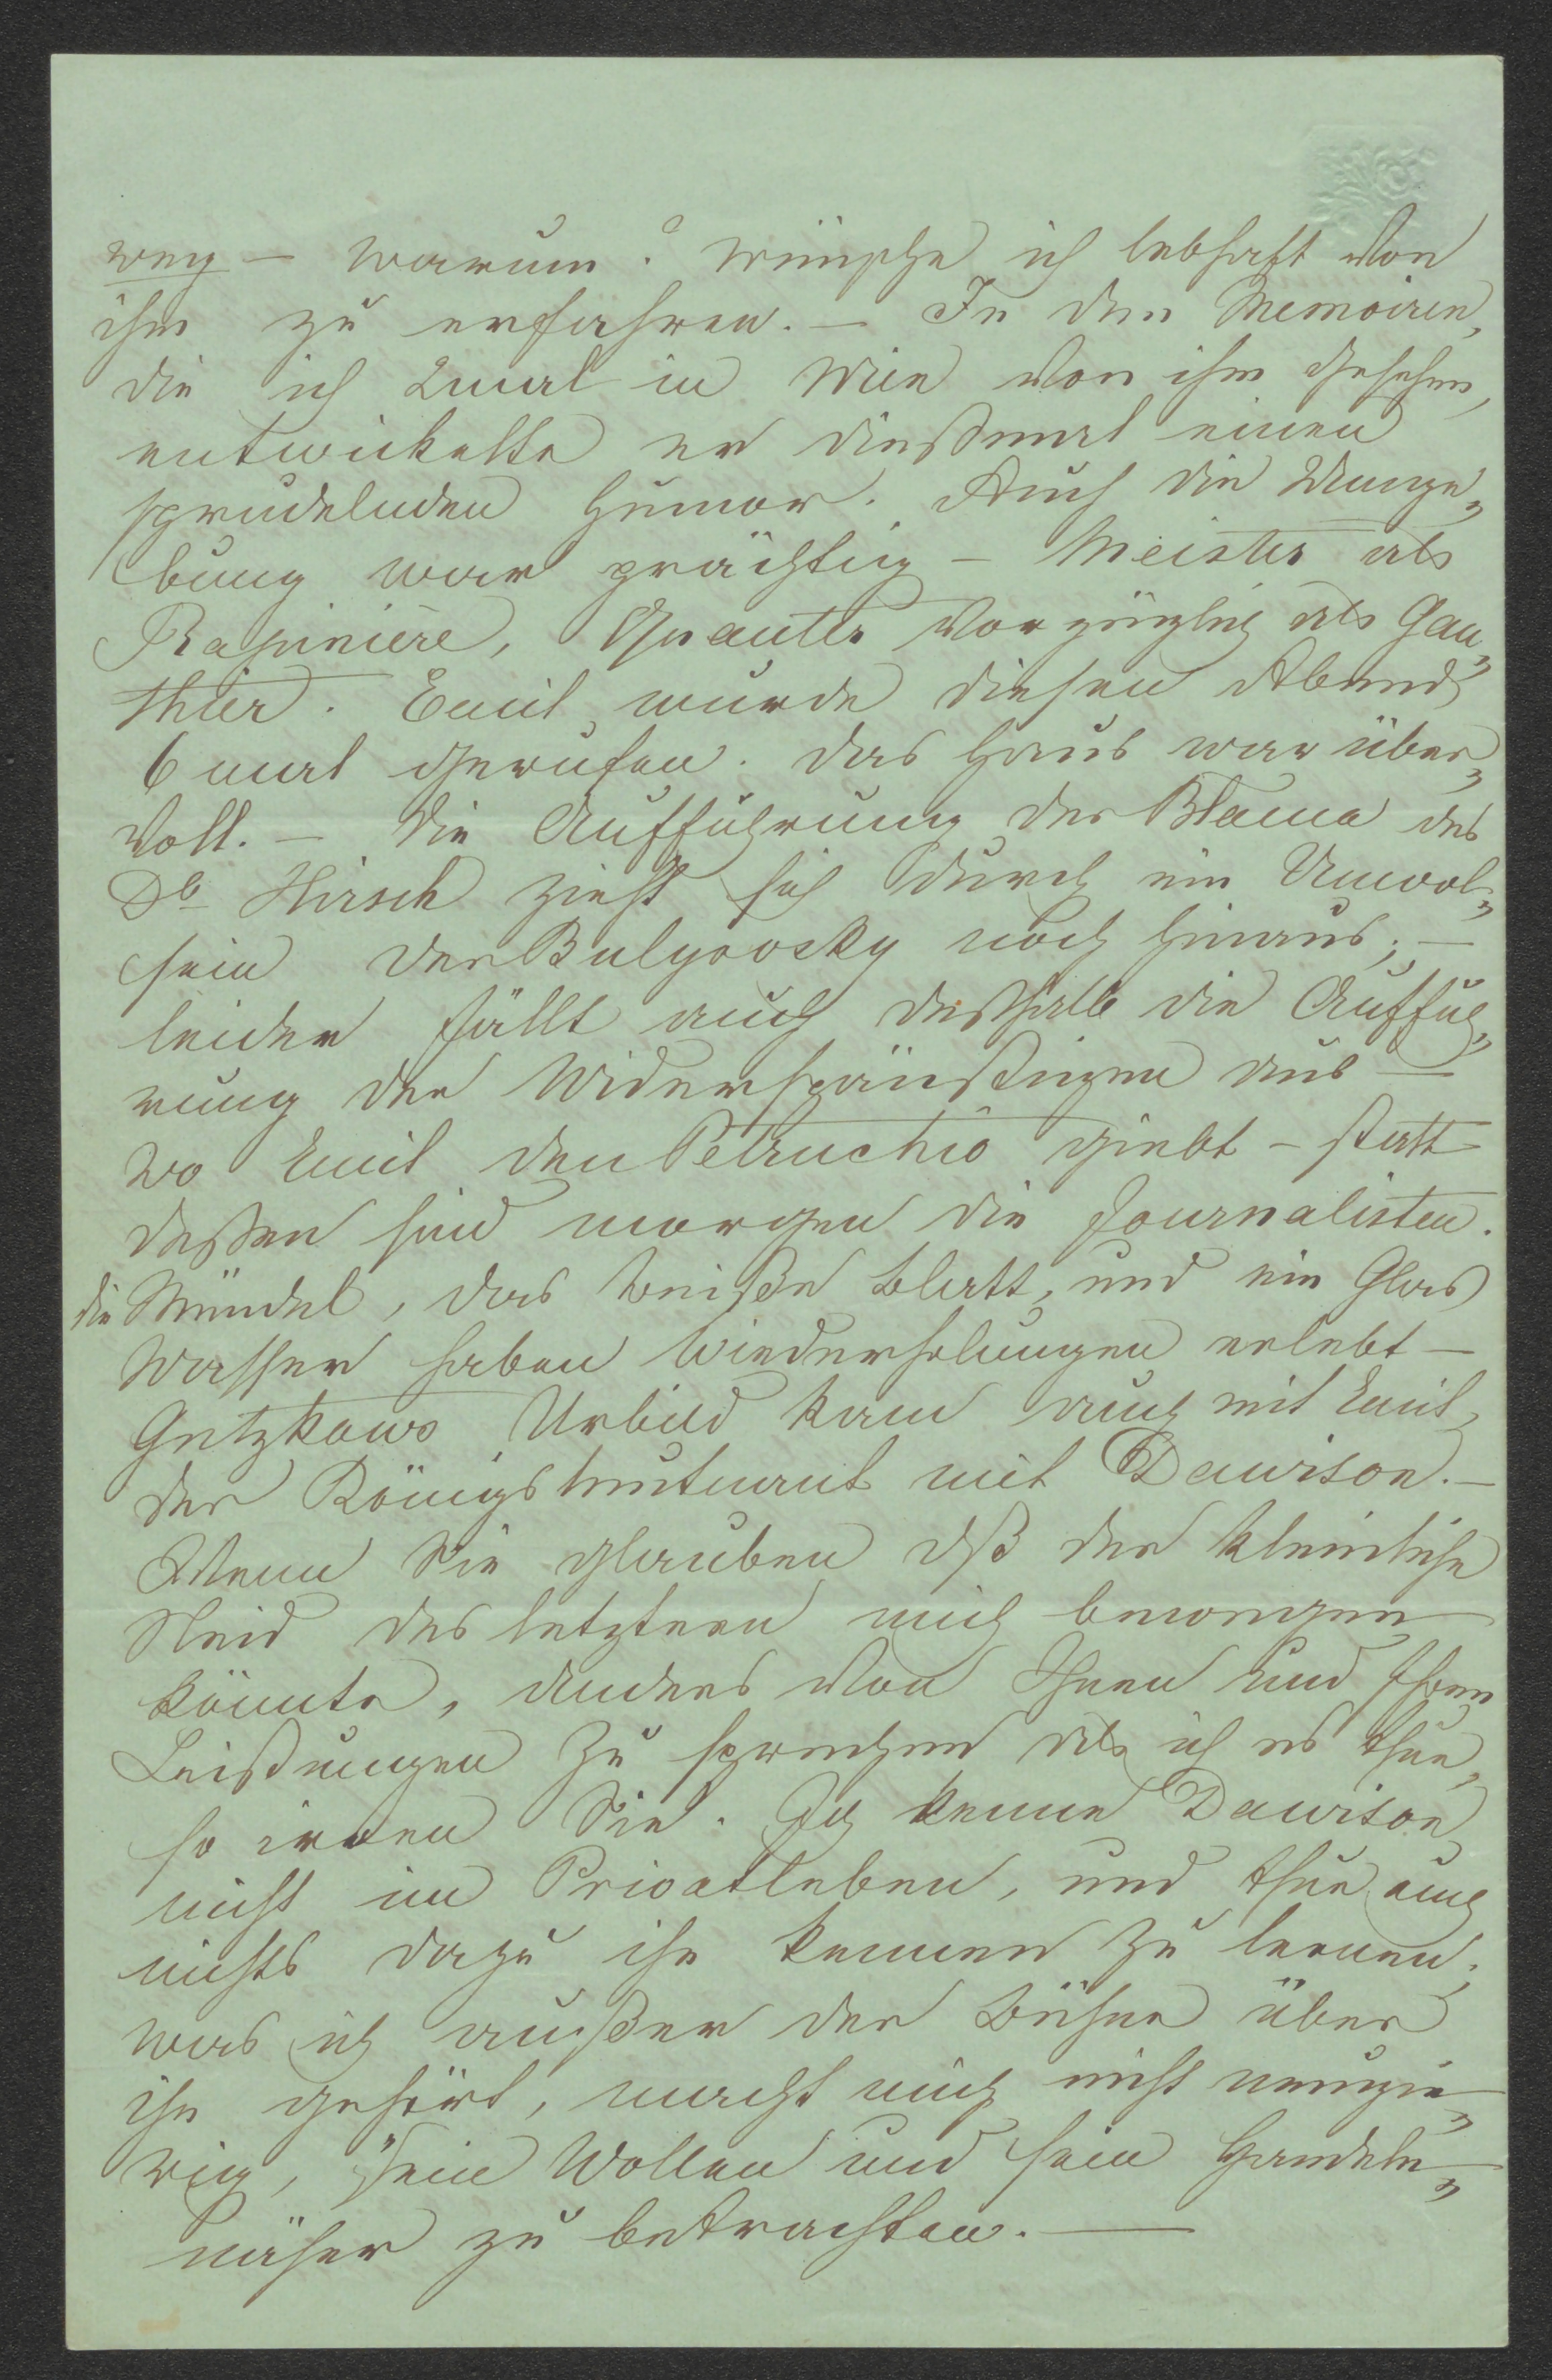 weg – warum? wünsche ich lebhaft von
ihm zu erfahren. – In den Memoiren,
die ich 2mal in Wien von ihm gesehen,
entwickelte er dießmal einen
sprudelnden Humor. Auch die Umge„
bung war prächtig – Meister als
Rapinière, Quanter vorzüglich als Gau„
thier. Emil wurde diesen Abend
6 mal gerufen. Das Haus war über„
voll. – Die Aufführung der Blanca des
Dr Hirsch zieht sich durch ein Unwol„
sein der Bulyovsky noch hinaus; –
leider fällt auch deßhalb die Auffüh„
rung der Widerspänstigen aus –
wo Emil den Petruchio giebt – statt
deßen sind morgen die Journalisten.
die Mündel, das weiße Blatt, und ein Glas
Wasser haben Wiederholungen erlebt –
Gutzkows Urbild kam auch mit Emil,
der Königsleutnant mit Dawison. –
Wenn Sie glauben dß der kleinliche
Neid des letztern mich bewegen
könnte, anders von Ihnen und Ihren
Leistungen zu sprechen als ich es thue,
so irren Sie. Ich kenne Dawison
nicht im Privatleben, und thue auch
nichts dazu ihn kennen zu lernen;
was ich außer der Bühne über
ihn gehört, macht mich nicht neugie„
rig, sein Wollen und sein Handeln
näher zu betrachten. –